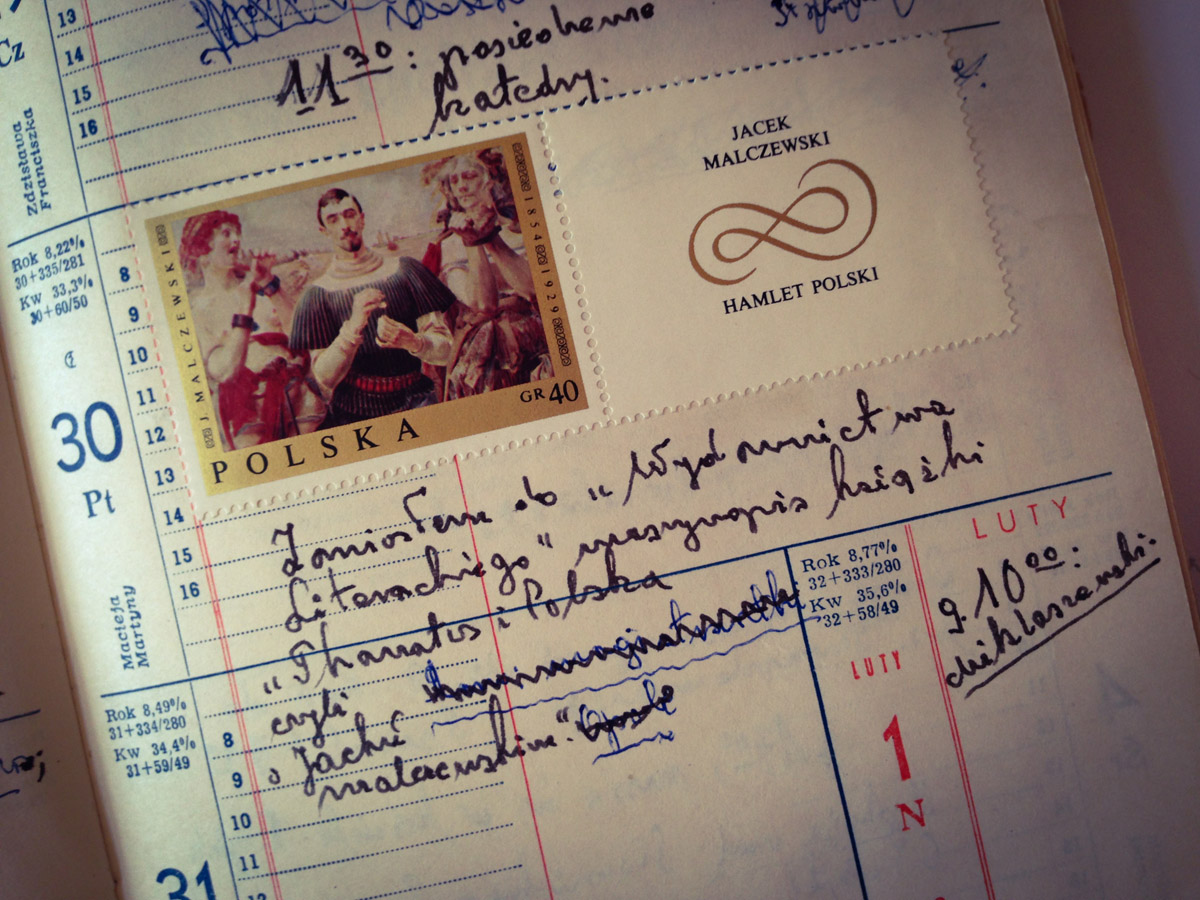 13
Cz
14
15
16
11 30: posiedzenie
katedry.
Zdzisława
Franciszka
Rok 8,22%
30+335/281
Kw 33,3%
30+60/50
30
Pt
Macieja
Martyny
8
9
10
11
12
13
14
15
16
J. MALCZEWSKI
1854-1929
POLSKA
GR 40
JACEK
MALCZEWSKI
HAMLET POLSKI
Zaniosłem do „Wydawnictwa
Literackiego" maszynopis książki
„Thanatos i Polska
czyli
o Jacku
Malczewskim."
Rok 8,49%
31+334/280
Kw 34,4%
31+59/49
31
8
9
10
11
12
Rok 8,77%
32+333/280
Kw 35,6%
32+58/49
LUTY
1
N
LUTY
g. 10 00:
Mikłaszewski.